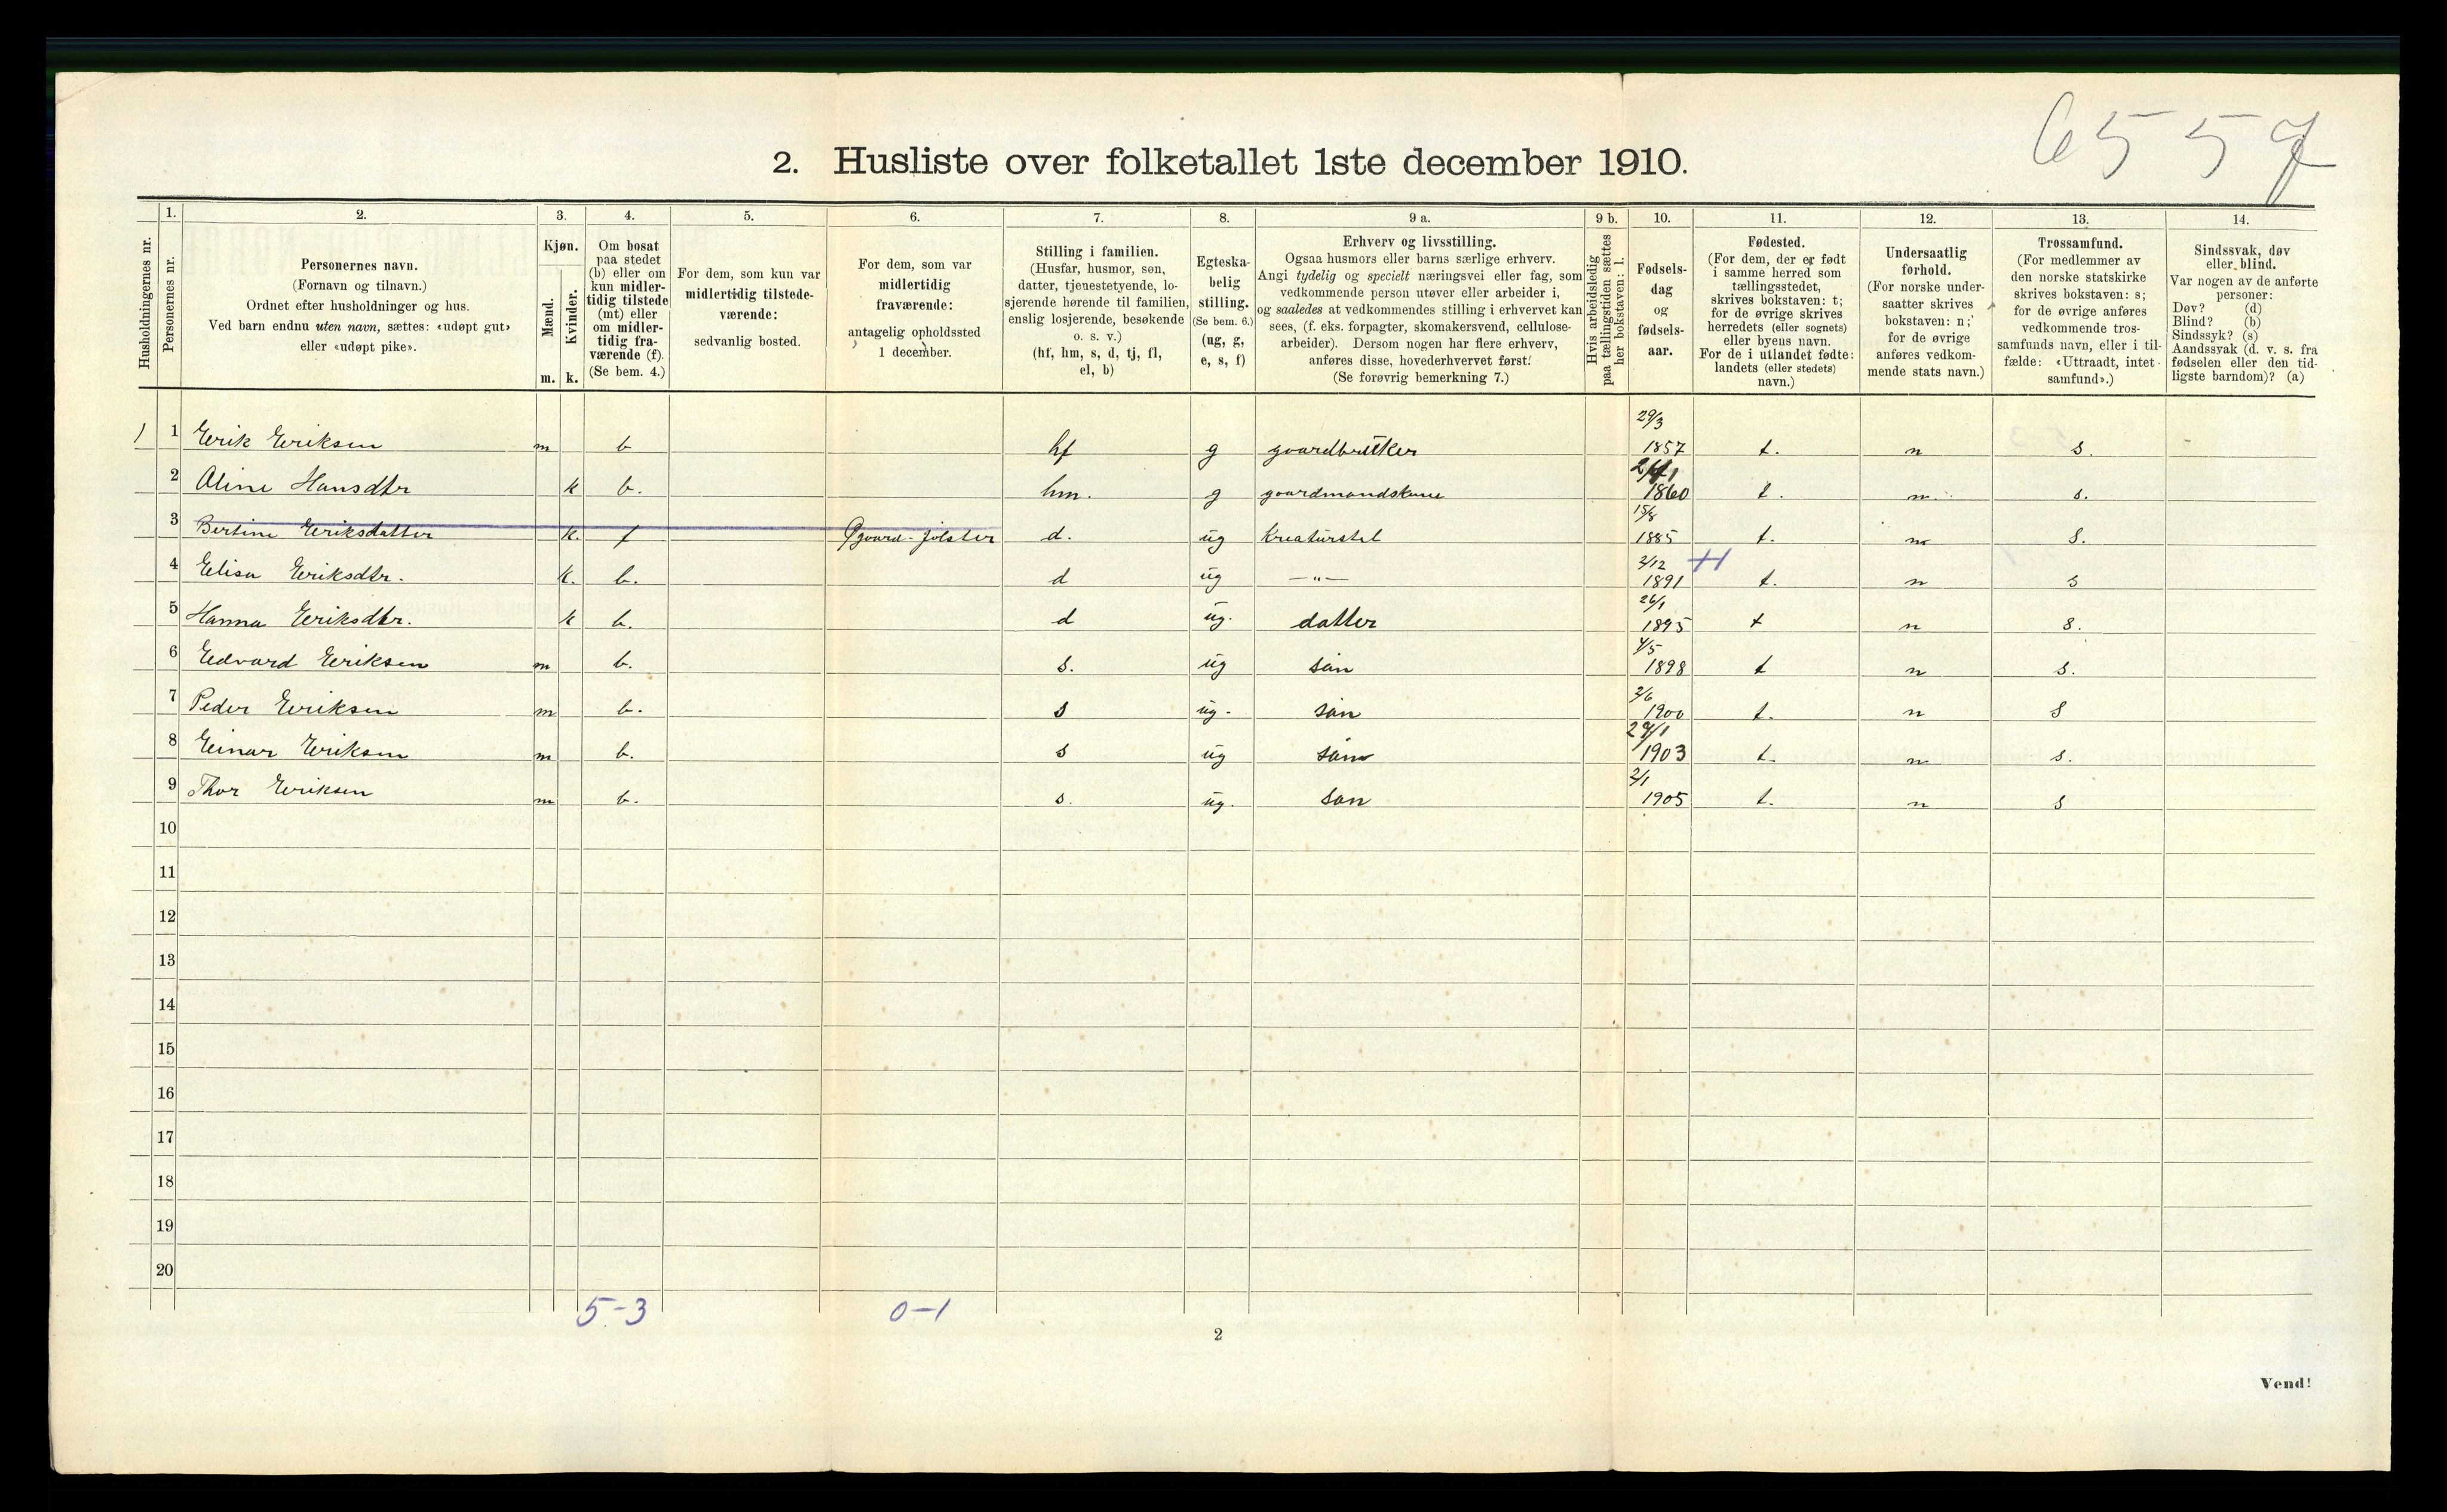 6557
2. Husliste over folketallet 1ste december 1910.
Husholdningernes nr.
1. Personernes nr.
2. Personernes navn. (Fornavn og tilnavn.) Ordnet efter husholdninger og hus. Ved barn endnu uten navn, sættes: «udøpt gut» eller «udøpt pike».
3. Kjøn. Mænd. m. Kvinder. k.
4. Om bosat paa stedet (b) eller om kun midlertidig tilstede (mt) eller om midlertidig fraværende (f). (Se bem. 4.)
5. For dem, som kun var midlertidig tilstedeværende: sedvanlig bosted.
6. For dem, som var midlertidig fraværende: antagelig opholdssted 1 december.
7. Stilling i familien. (Husfar, husmor, søn, datter, tjenestetyende, losjerende hørende til familien, enslig losjerende, besøkende o. s. v.) (hf, hm, s, d, tj, fl, el, b)
8. Egteskabelig stilling. (Se bem. 6.) (ug, g, e, s, f)
9 a. Erhverv og livsstilling. Ogsaa husmors eller barns særlige erhverv. Angi tydelig og specielt næringsvei eller fag, som vedkommende person utøver eller arbeider i, og saaledes at vedkommendes stilling i erhvervet kan sees, (f. eks. forpagter, skomakersvend, cellulosearbeider). Dersom nogen har flere erhverv, anføres disse, hovederhvervet først. (Se forøvrig bemerkning 7.)
9 b. Hvis arbeidsledig paa tællingstiden sættes her bokstaven: l.
10. Fødselsdag og fødselsaar.
11. Fødested. (For dem, der er født i samme herred som tællingsstedet, skrives bokstaven: t; for de øvrige skrives herredets (eller sognets) eller byens navn. For de i utlandet fødte: landets (eller stedets) navn.)
12. Undersaatlig forhold. (For norske undersaatter skrives bokstaven: n; for de øvrige anføres vedkommende stats navn.)
13. Trossamfund. (For medlemmer av den norske statskirke skrives bokstaven: s; for de øvrige anføres vedkommende trossamfunds navn, eller i tilfælde: «Uttraadt, intet samfund».)
14. Sindssvak, døv eller blind. Var nogen av de anførte personer: Døv? (d) Blind? (b) Sindssyk? (s) Aandssvak (d. v. s. fra fødselen eller den tidligste barndom)? (a)
1 1 Erik Eriksen m b hf g gaardbruker 29/3 1857 t. n s.
2 Oline Hansdtr k b. hm. g gaardmandskone 1860 t. n. s.
3 Bertine Eriksdatter k. f Øgaard-Jølster d. ug Kreaturstel 15/8 1885 t. n s.
4 Elisa Eriksdtr. k. b. d ug —"— 2/12 1891 t. n s
5 Hanna Eriksdtr. k b. d ug. datter 26/1 1895 t n s.
6 Edvard Eriksen m b. s. ug sön 4/5 1898 t n s.
7 Peder Eriksen m b. s ug. sön 2/6 1900 t. n s
8 Einar Eriksen m b. s ug sön 29/1 1903 t. n s.
9 Thor Eriksen m b. s. ug. sön 2/1 1905 t. n s
10
11
12
13
14
15
16
17
18
19
20
5-3 0-1
2
Vend!